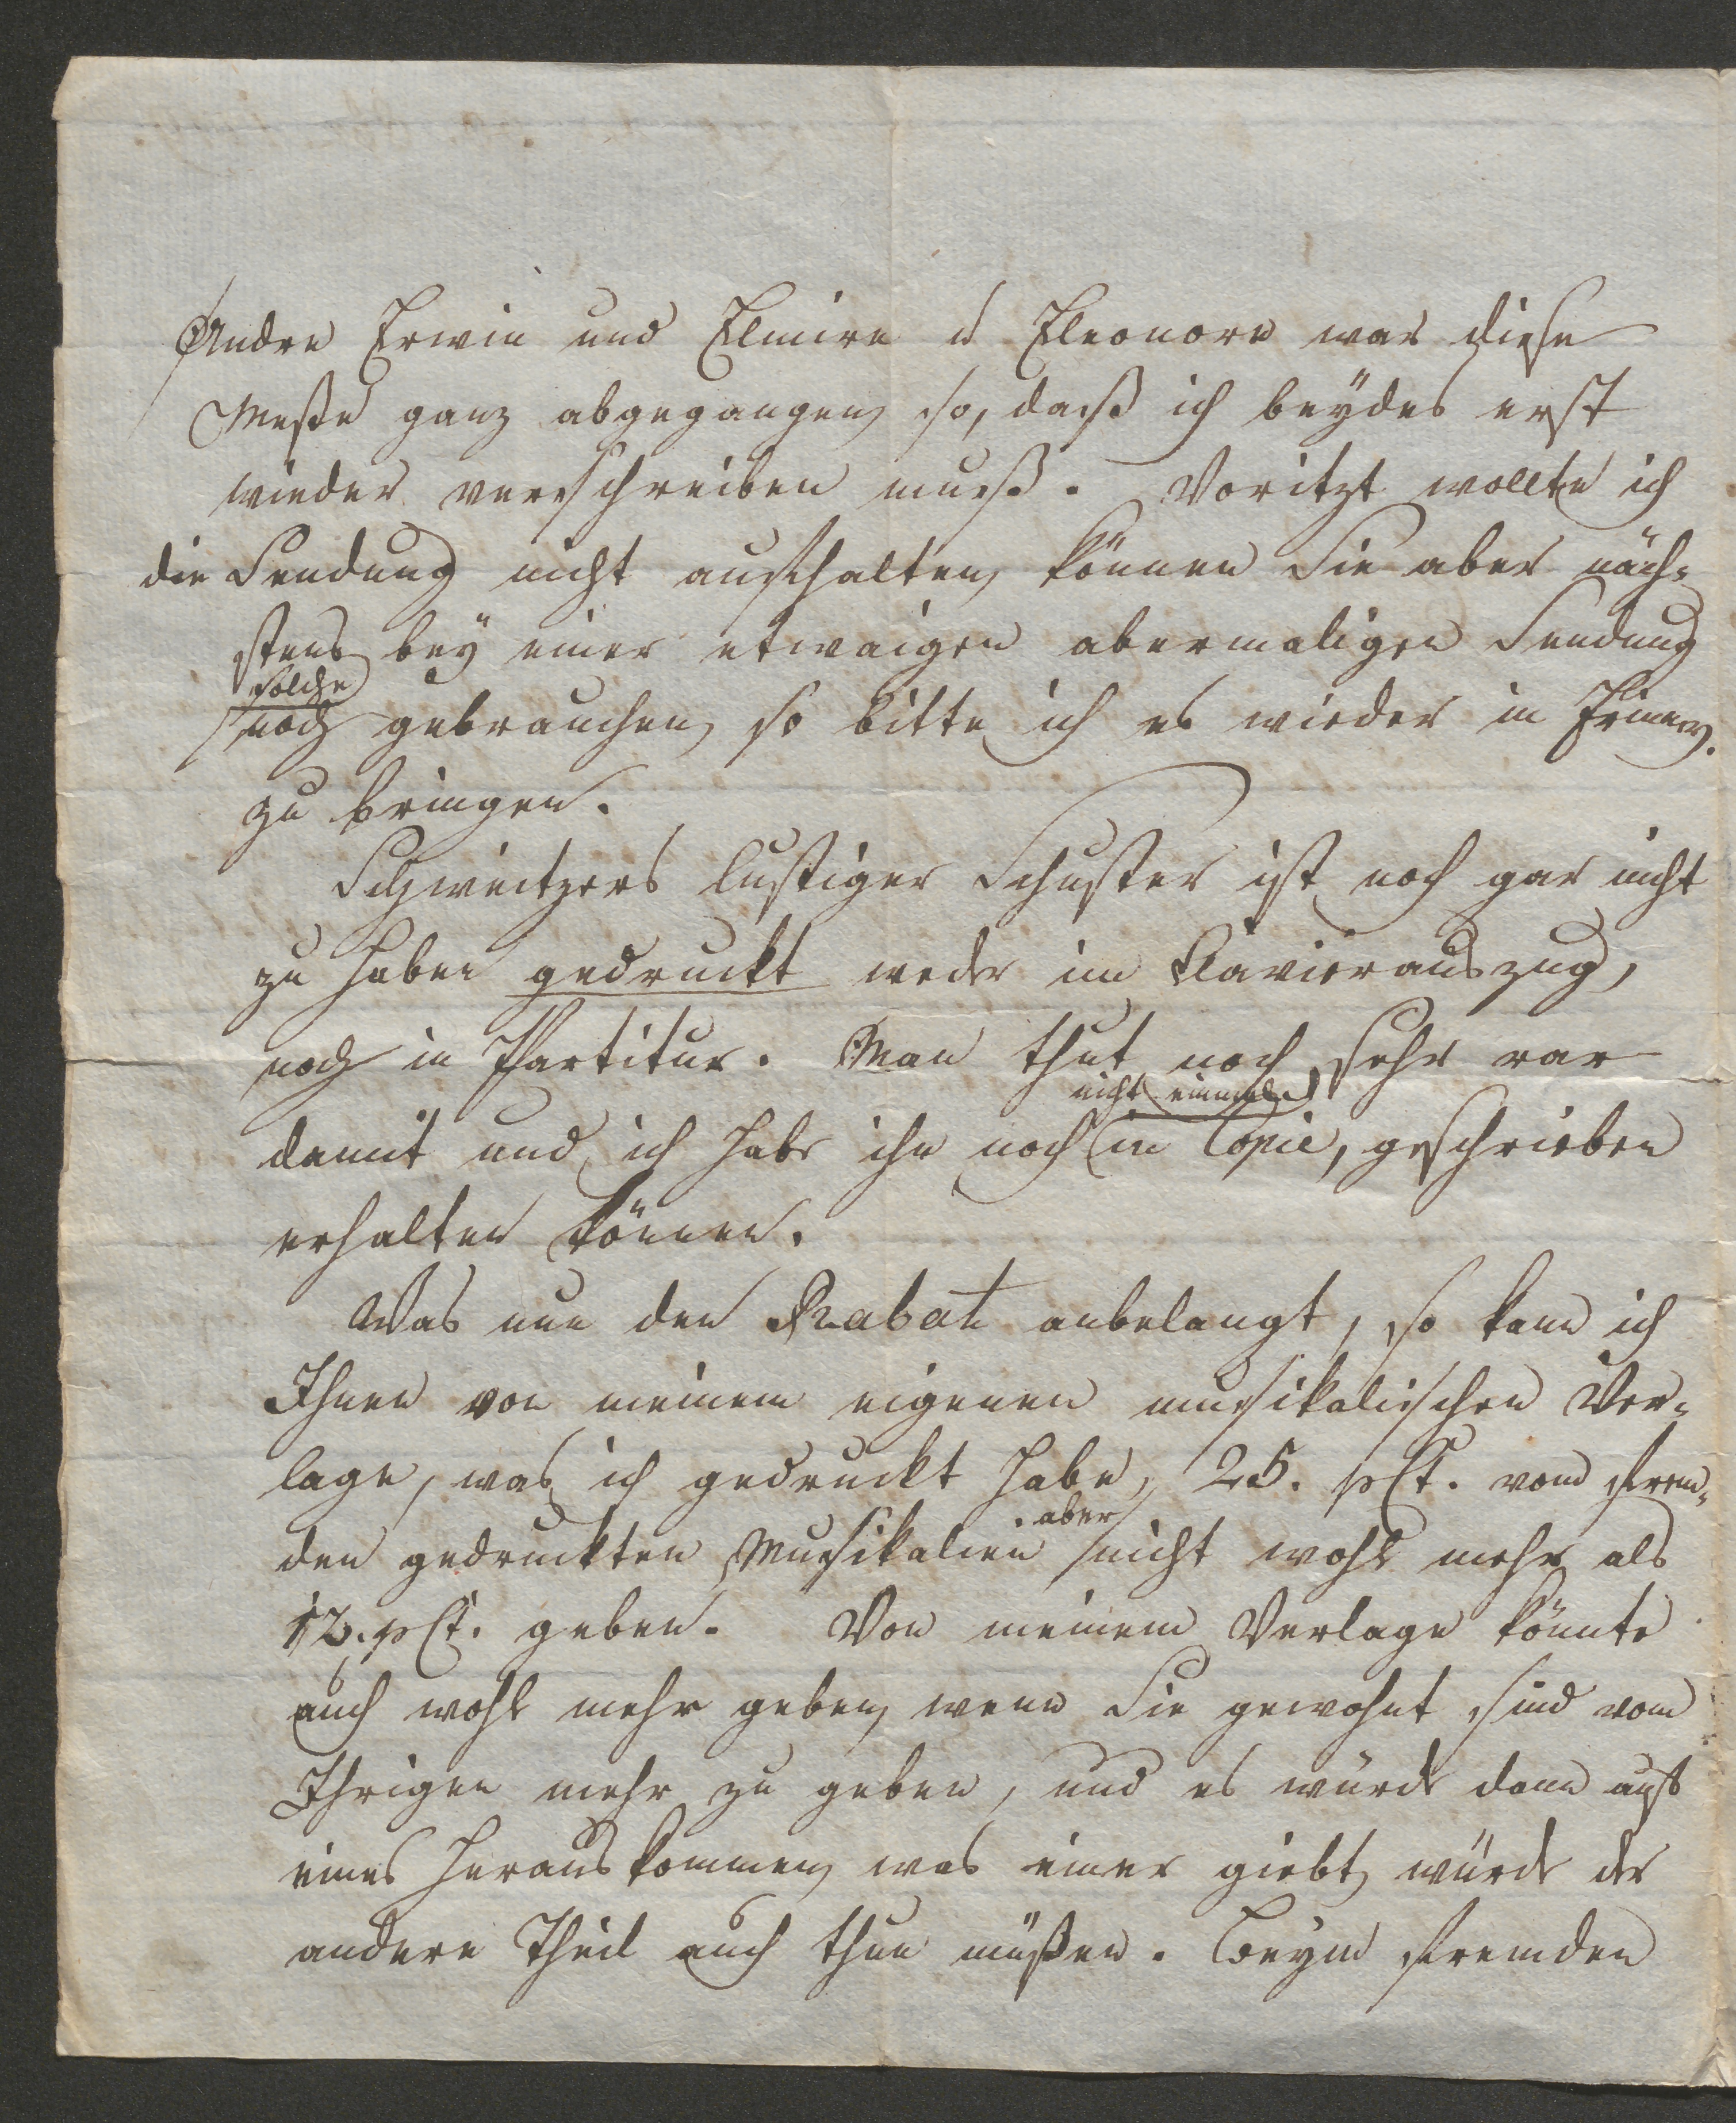 Andre Erwin und Elmire u Eleonore war diese
Messe ganz abgegangen so, daß ich beydes erst
wieder verschreiben muß. Voritzt wollte ich
die Sendung nicht aufhalten, können Sie aber näch-
stens bey einer etwaigen abermaligen Sendung
solche
noch gebrauchen, so bitte ich es wieder in Erinnrg.
zu bringen.
Schweitzers lustiger Schuster ist noch gar nicht
zu haben gedruckt weder im Klavierauszug,
noch in Partitur. Man thut noch sehr rar
nicht einmal
damit und ich habe ihn noch in Copie, geschrieben
erhalten können.
Was nun den Rabat anbelangt, so kann ich
Ihnen von meinem eigenen musikalischen Ver-
lage, was ich gedruckt habe, 25. pCt. vom frem-
aber
den gedruckten Musikalien nicht wohl mehr als
12. pCt. geben. Von meinem Verlage könnte
auch wohl mehr geben, wenn Sie gewohnt sind vom
Ihrigen mehr zu geben, und es würde dann aufs
eines herauskommen, was einer giebt, würde der
andere Theil auch thun müßen. Beym fremden